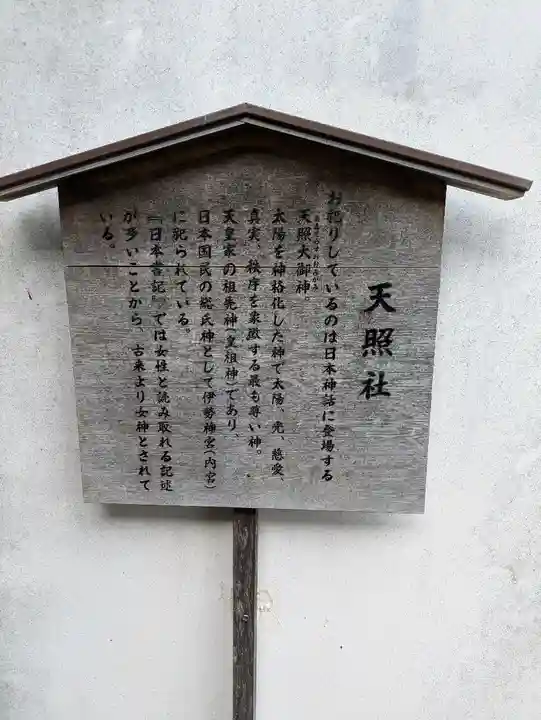 天照社
お祀りしているのは日本神話に登場する
天照大御神
あまてらすおおみかみ
太陽を神格化した神で太陽、光、慈愛、
真実、秩序を象徴する最も尊い神。
天皇家の祖先神(皇祖神)であり、
日本国民の総氏神として伊勢神宮(内宮)
に祀られている。
『日本書記』では女性と読み取れる記述
が多いことから、古来より女神とされて
いる。